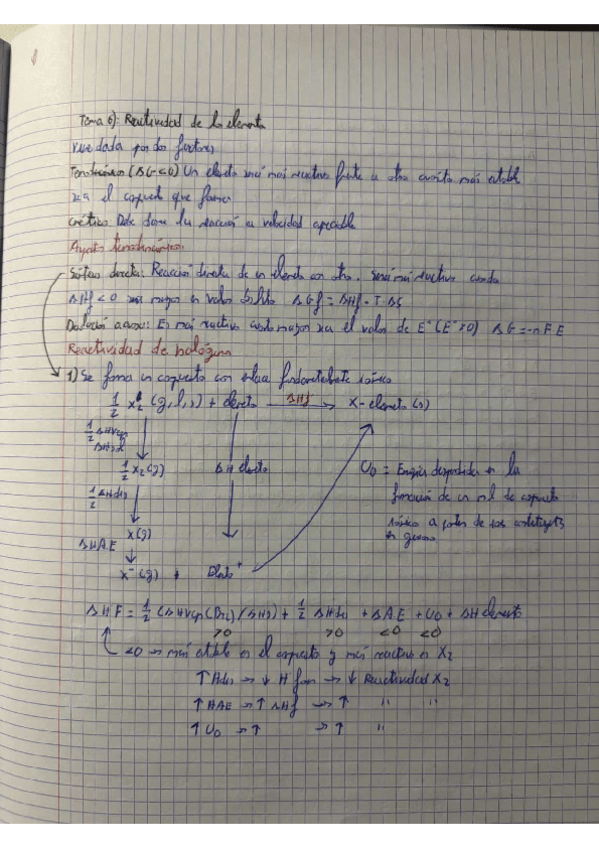 Tema 6): Reactividad de los elementos
viene dada por dos factores
Termodinámico (ΔG<0) Un elemento será más reactivo frente a otro cuanto más estable
sea el compuesto que forman
Cinético: Debe darse la reacción a velocidad apreciable
Aspectos termodinámicos
Síntesis directa: Reacción directa de un elemento con otro. Será más reactivo cuando
ΔHf<0 sea mayor en valor absoluto ΔGf = ΔHf - T·ΔS
Disolución acuosa: Es más reactivo cuanto mayor sea el valor de E° (E°>0) ΔG = -n F E
Reactividad de halógenos
1) Se forma un compuesto con enlace fundamentalmente iónico
1/2 X2 (g, l, s) + elemento ΔHf → X-elemento (s)
1/2 ΔHvap
ΔHsub
1/2 X2 (g) ΔH elemento U0 = Energía desprendida en la
formación de un mol de compuesto
1/2 ΔHdis
iónico a partir de sus constituyentes
en gaseoso
X(g)
ΔHAE
X⁻(g) + Elemento⁺
ΔHF = 1/2 (ΔHvap (Br2) / ΔHS) + 1/2 ΔHdis + ΔAE + U0 + ΔH elemento
>0 >0 <0 <0
<0 → más estable es el compuesto y más reactivo es X2
↑ Hdis → ↓ H form → ↓ Reactividad X2
↑ HAE → ↑ ΔHf → ↑ " "
↑ U0 → ↑ → ↑ "